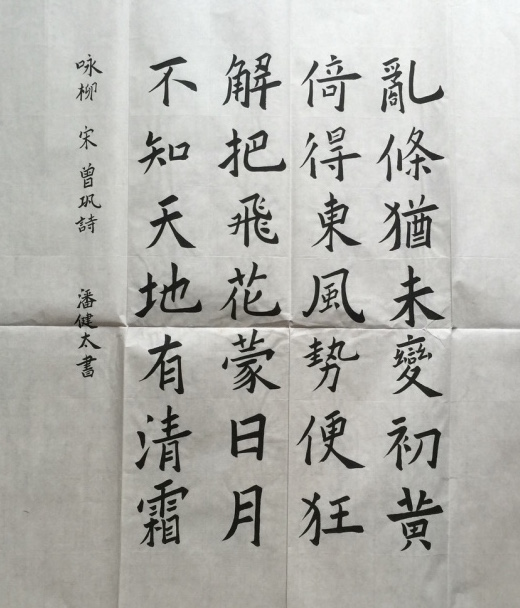 亂條猶未變初黃
倚得東風勢便狂
解把飛花蒙日月
不知天地有清霜
咏柳 宋 曾巩詩 潘健太書